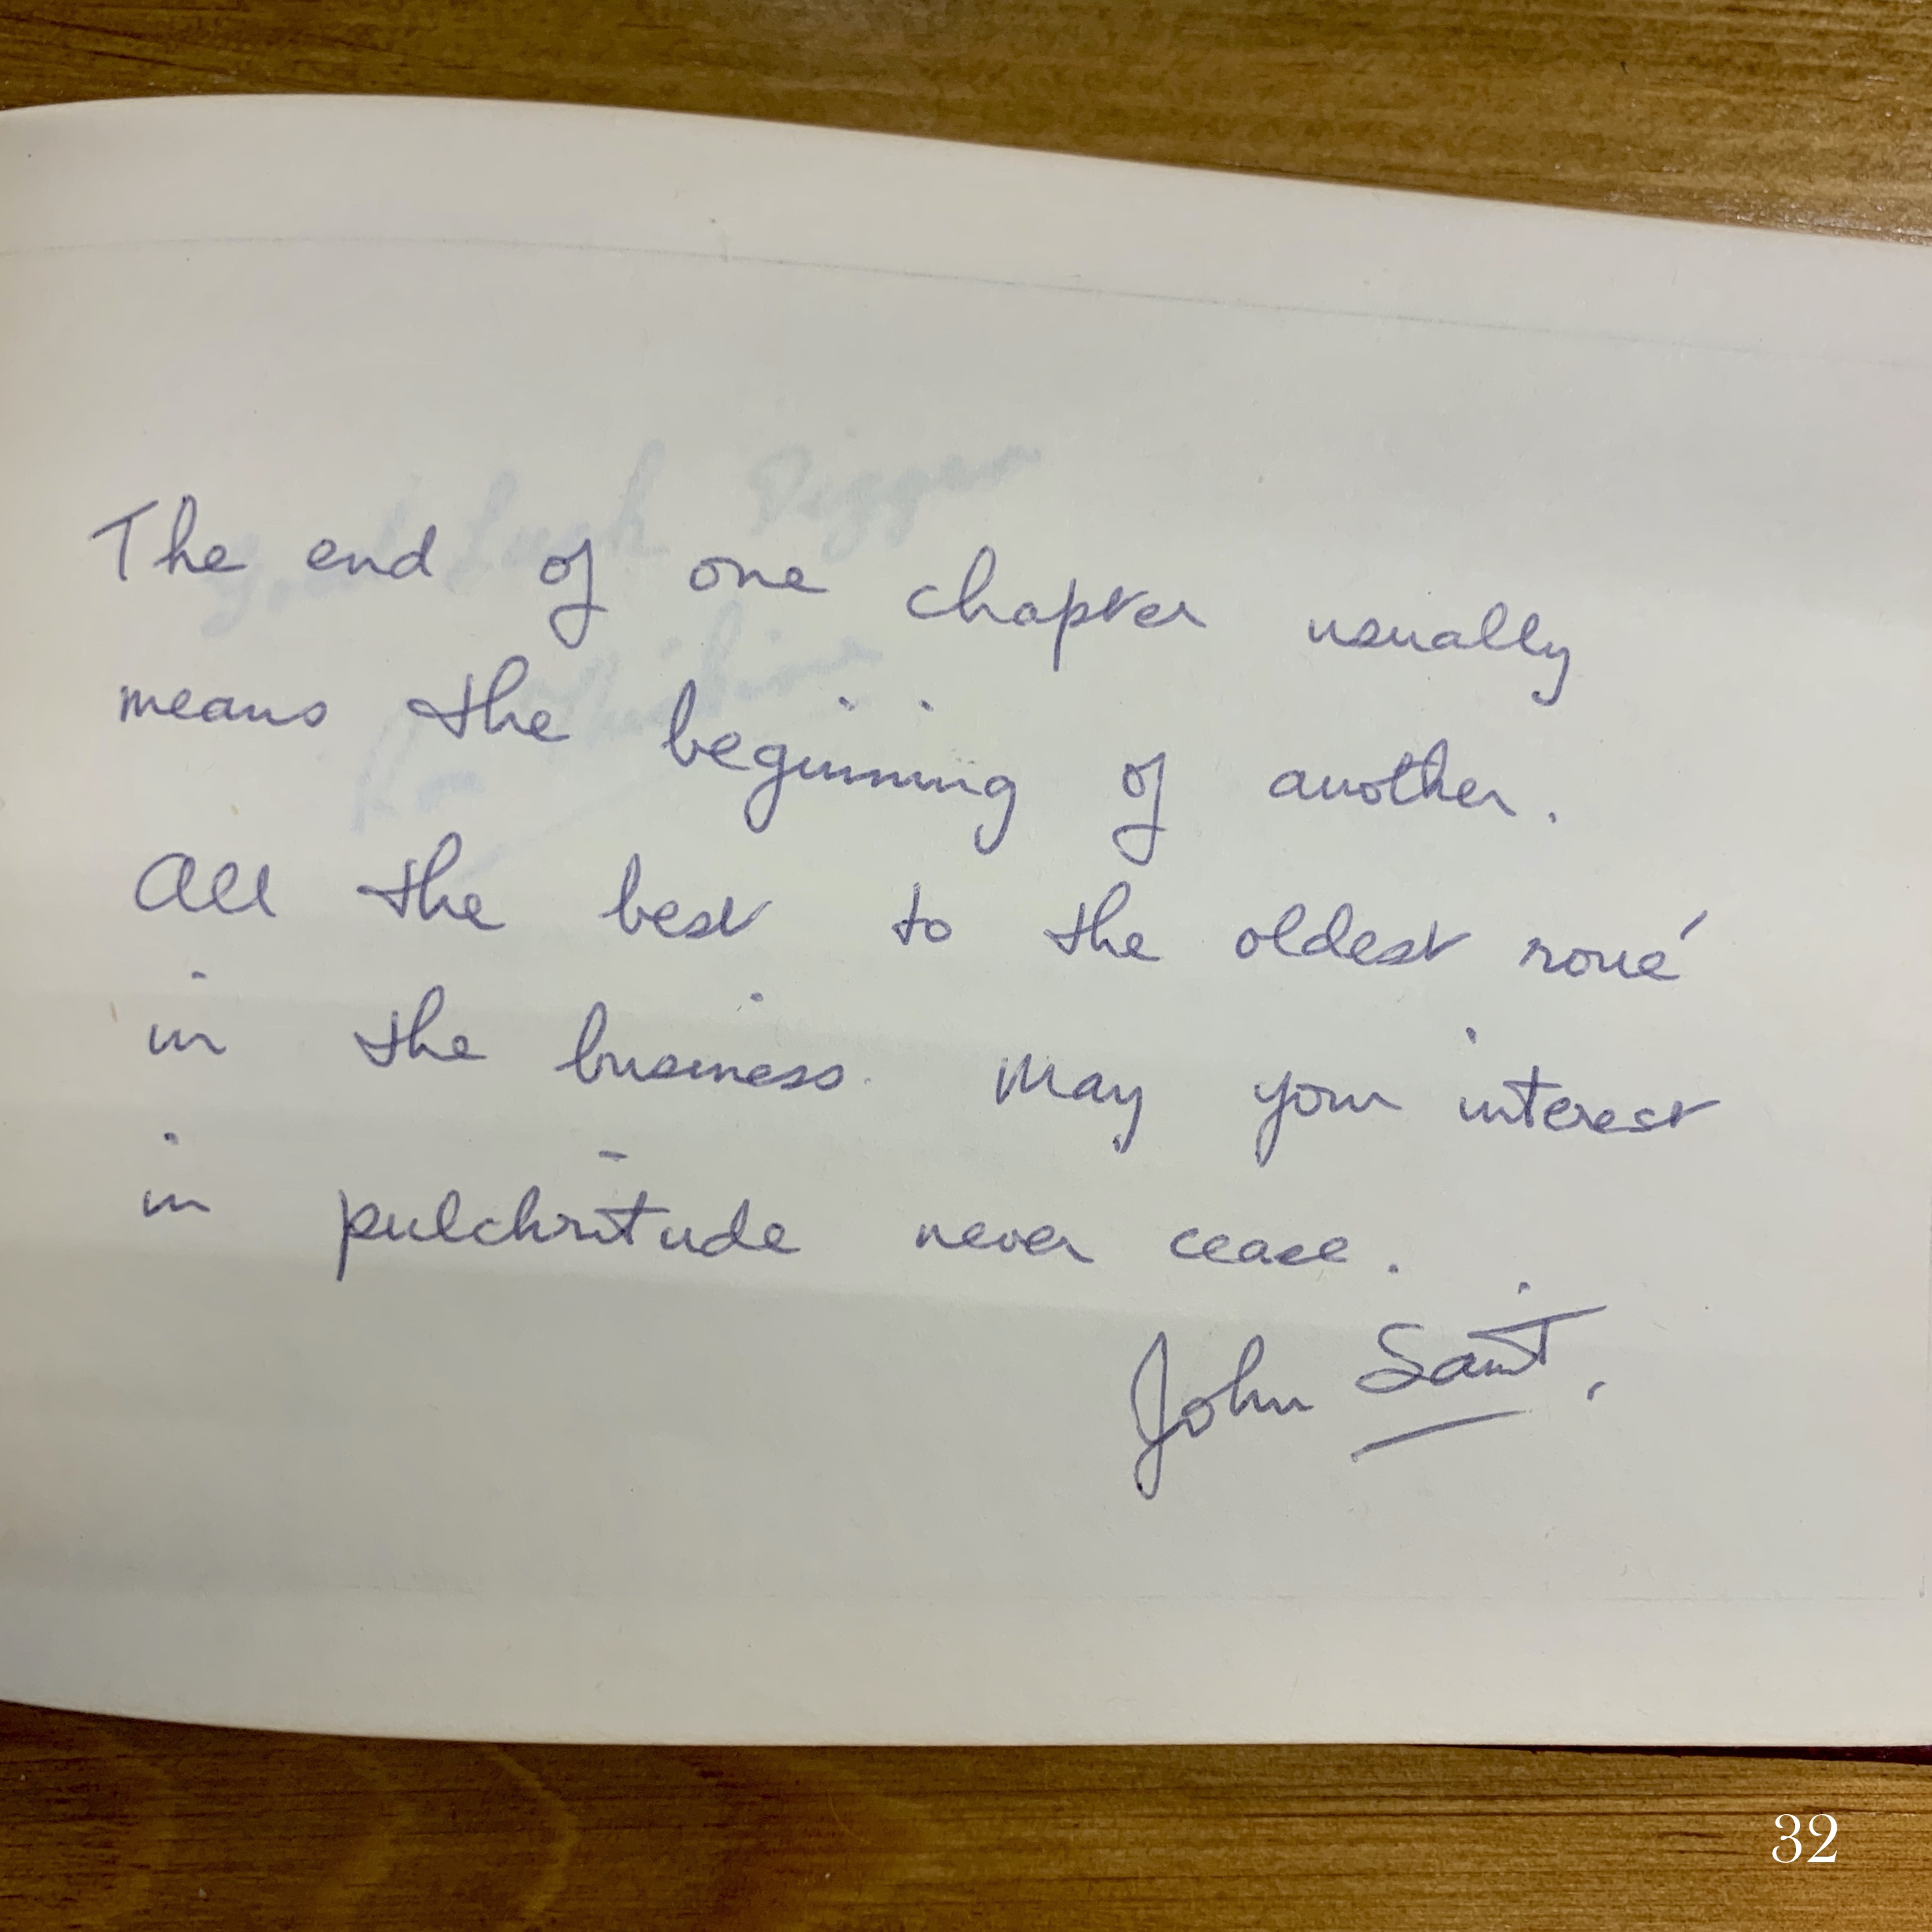 Good Luck Digger
Ron
The end of one chapter usually
means the beginning of another.
All the best to the oldest roué
in the business. May your interest
in pulchritude never cease.
John Saint.
32